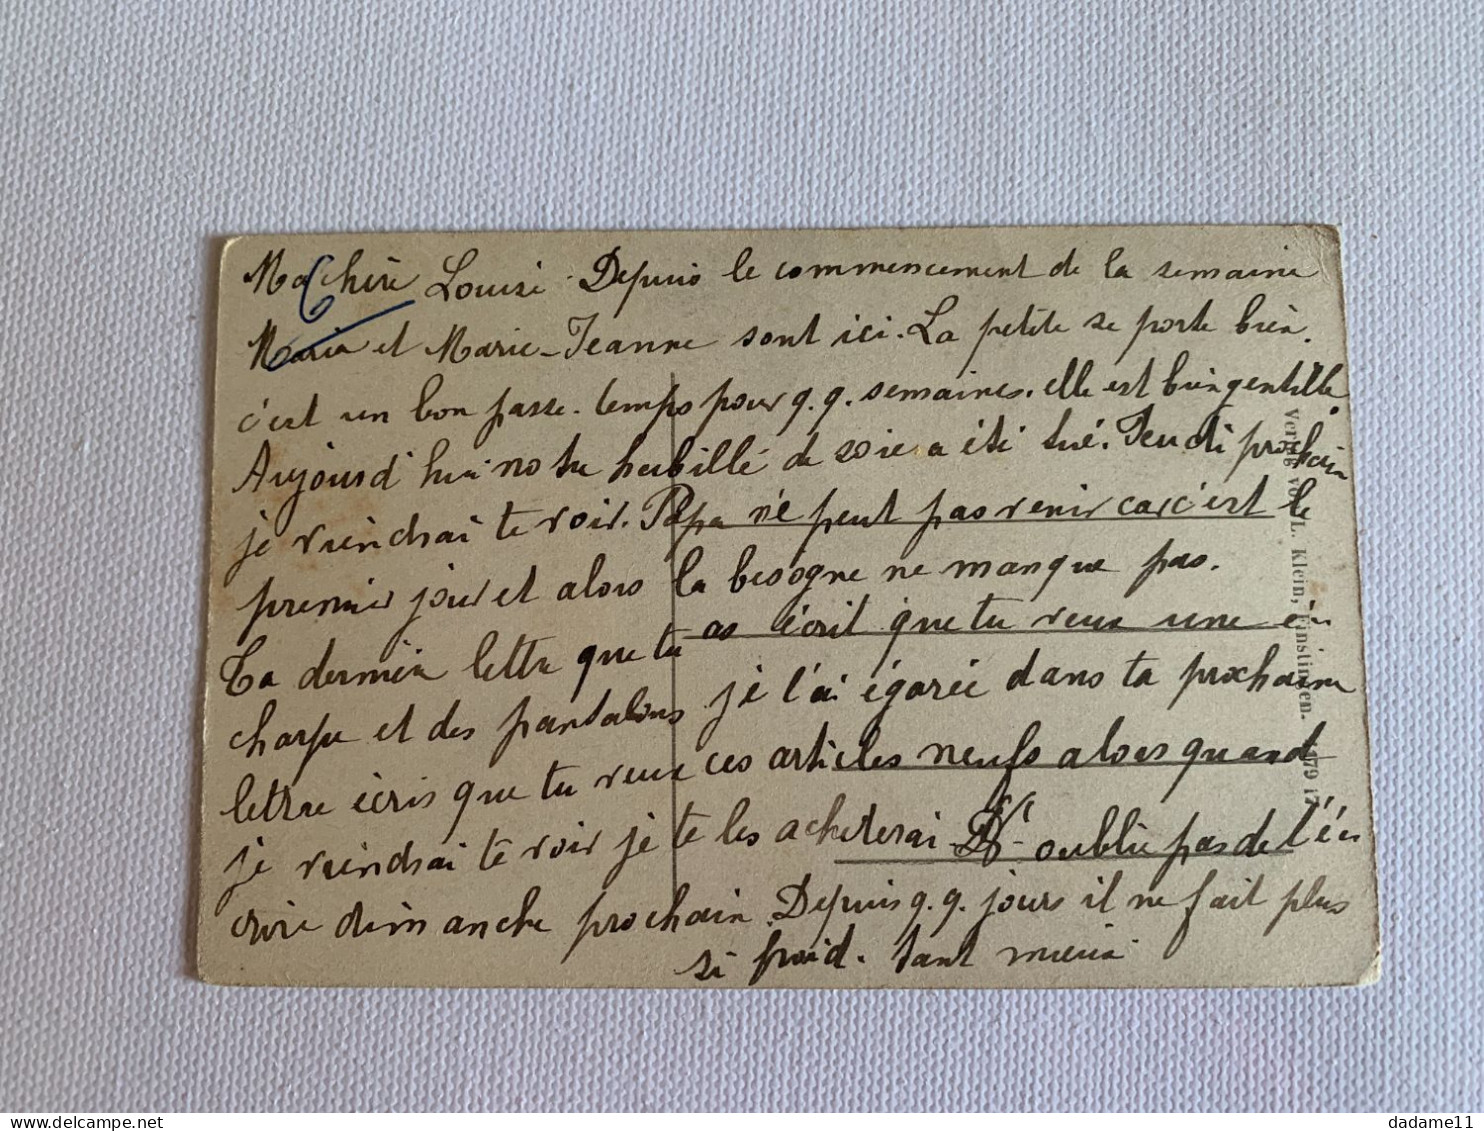 Ma Chère Louise. Depuis le commencement de la semaine
Maria et Marie-Jeanne sont ici. La petite se porte bien.
c'est un bon passe-temps pour q.q. semaines. elle est bien gentille.
Aujourd'hui notre habillé de soie a été tué. Jeudi prochain
je viendrai te voir. Papa ne peut pas venir car c'est le
premier jour et alors la besogne ne manque pas.
La dernière lettre que tu as écrit que tu veux une é-
charpe et des pantalons je l'ai égarée dans ta prochaine
lettre écris que tu veux ces articles neufs alors quand
je viendrai te voir je te les acheterai. N'oublie pas de t'é
crire dimanche prochain. Depuis q.q. jours il ne fait plus
si froid. tant mieux.
Verlag von L. Klein, Finstingen.
dadame11